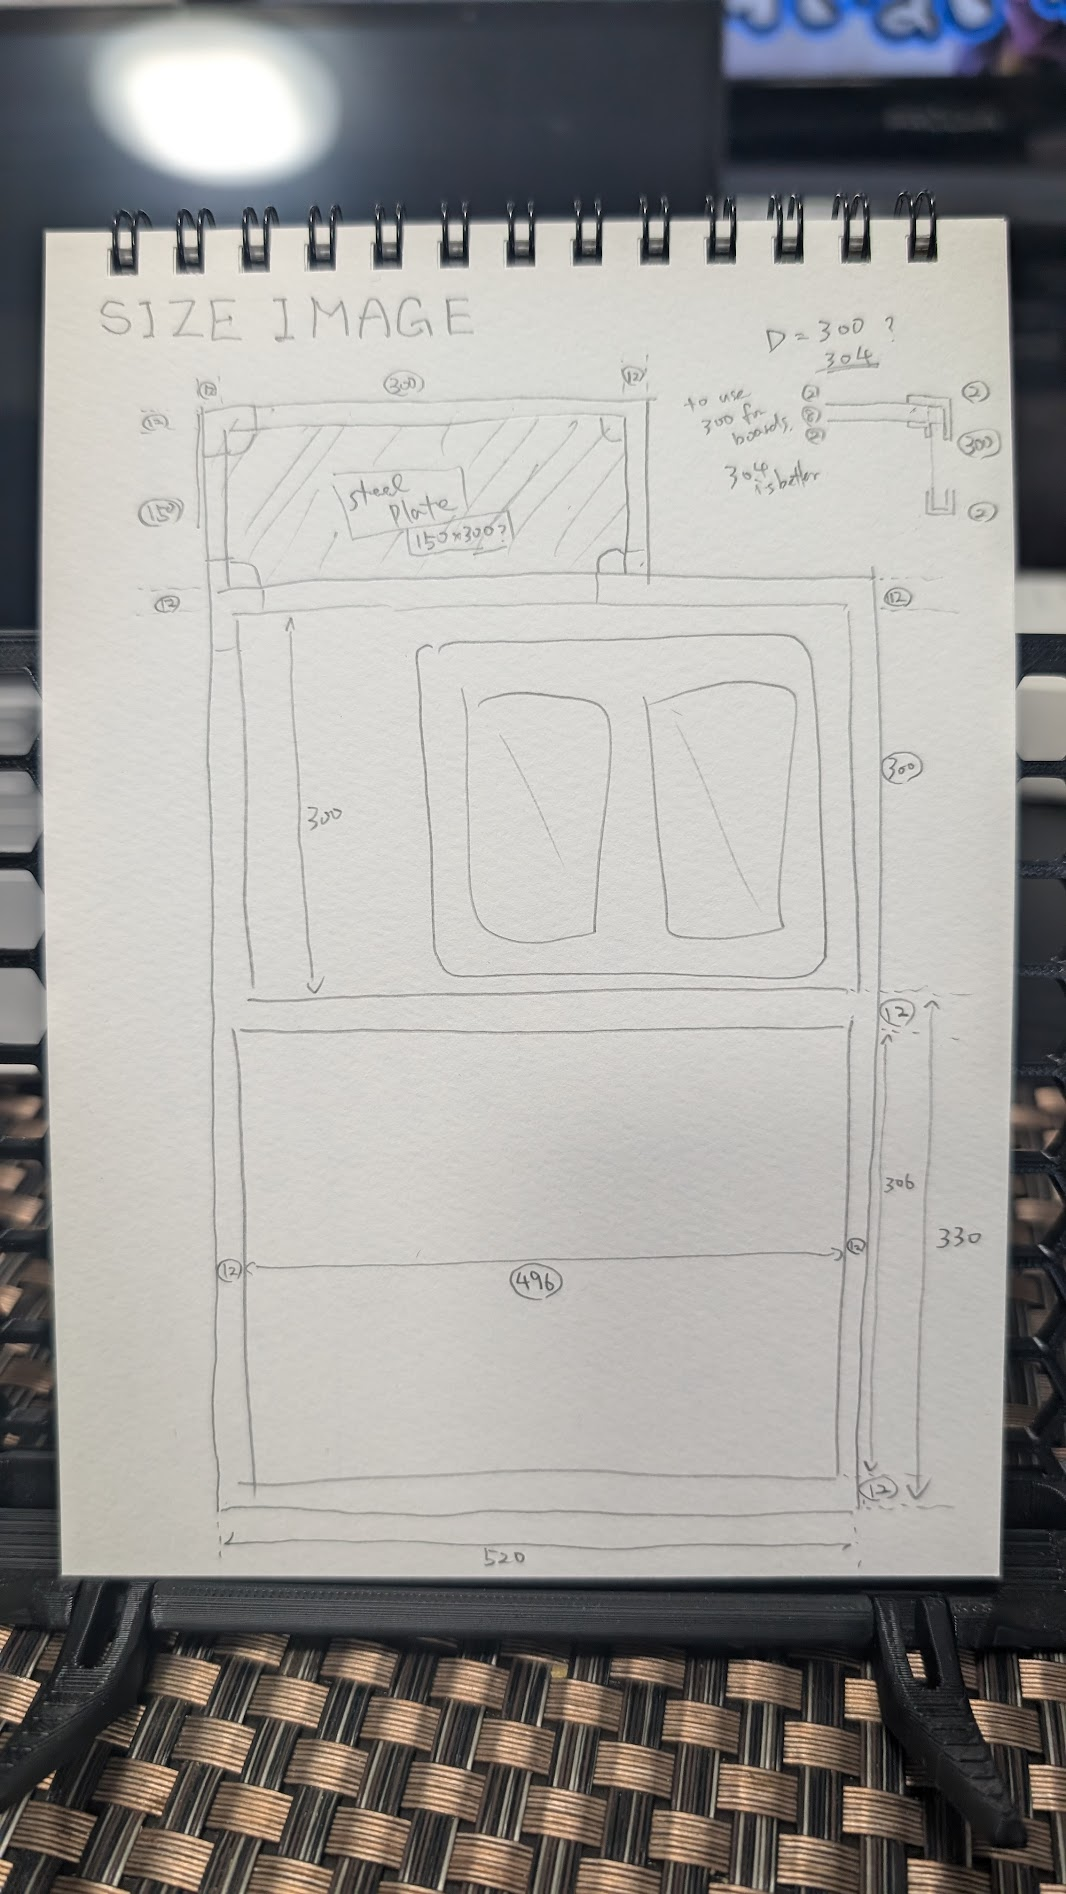 SIZE IMAGE
D = 300 ?
304
12
300
12
to use
300 for
boards.
304
is better
2
8
2
2
300
2
12
150
steel
plate
150×300?
12
12
300
300
12
306
330
12
496
12
12
520